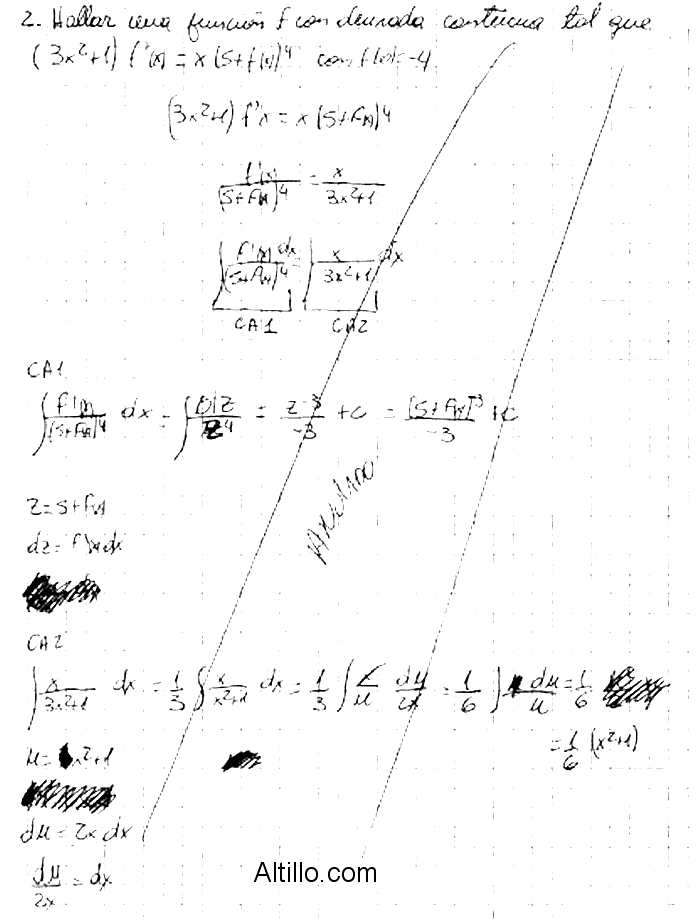 2. Hallar una función f con derivada continua tal que
(3x²+1) f'(x) = x (5+f(x))⁴ con f(0)=-4
(3x²+1) f'x = x (5+F(x))⁴
f'(x)/(5+F(x))⁴ = x/(3x²+1)
∫ f'(x) dx/(5+f(x))⁴ = ∫ x/(3x²+1) dx
CA1 CA2
CA1
∫ f'(x)/(5+F(x))⁴ dx = ∫ dz/z⁴ = z⁻³/-3 + c = [5+F(x)]⁻³/-3 + c
z = 5+f(x)
dz = f'(x) dx
CA2
∫ x/(3x²+1) dx = 1/3 ∫ x/(x²+1) dx = 1/3 ∫ x/μ dμ/2x = 1/6 ∫ dμ/μ = 1/6
= 1/6 (x²+1)
μ = x²+1
dμ = 2x dx
dμ/2x = dx
Altillo.com